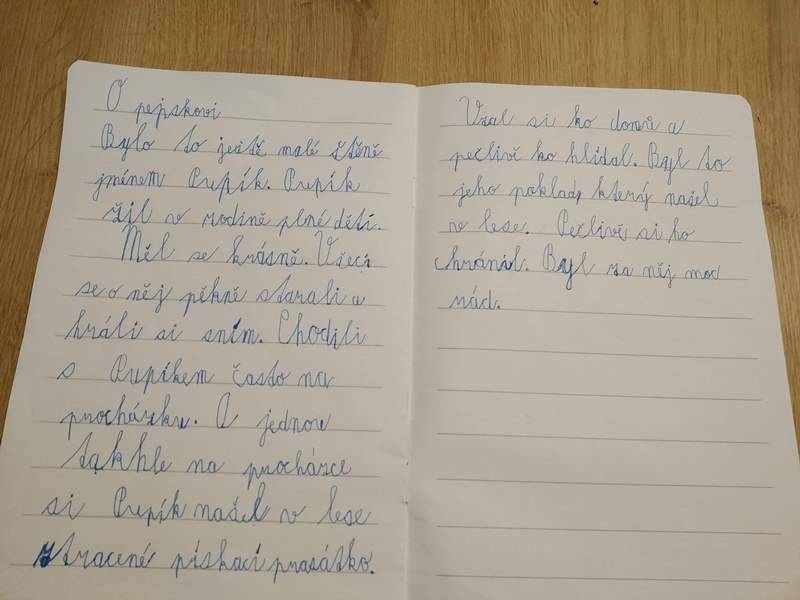 O pejskovi
Bylo to ještě malé štěně
jménem Pupík. Pupík
žil v rodině plné dětí.
Měl se krásně. Všeci
se o něj pěkně starali a
hráli si sním. Chodili
s Pupíkem často na
procházku. A jednou
takhle na procházce
si Pupík našel v lese
ztracené pískací prasátko.
Vzal si ho domů a
pečlivě ho hlídal. Byl to
jeho poklad, který našel
v lese. Pečlivě si ho
chránil. Byl za něj moc
rád.